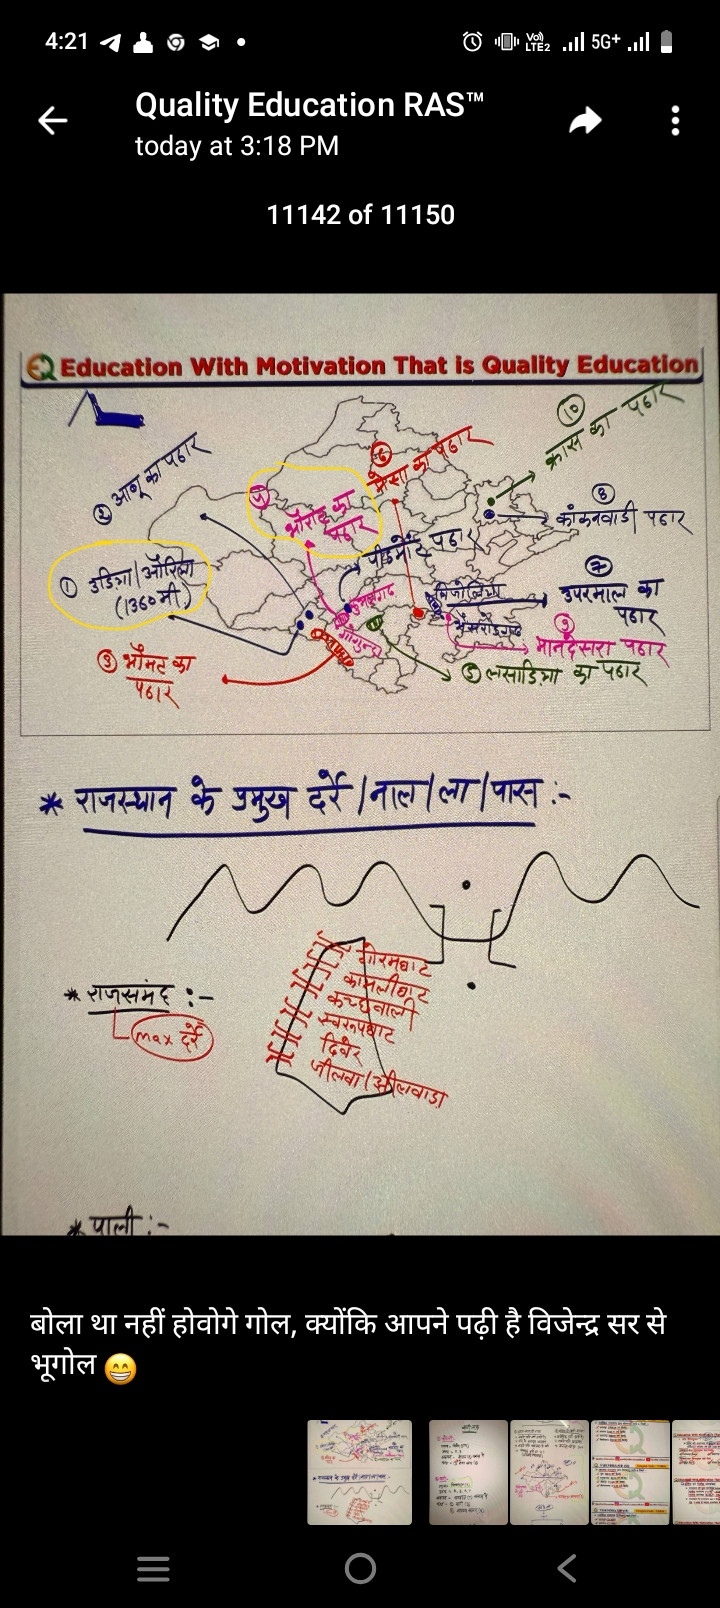 4:21
Vo)) LTE2 5G+
Quality Education RAS™
today at 3:18 PM
11142 of 11150
EQ Education With Motivation That is Quality Education
② आबू का पठार
① उडिया/ओरिया
(1360 मी)
③ भोमट का
पठार
④ भोराट का
पठार
⑥ मेसा का पठार
⑩ क्रास का पठार
⑧
कांकनवाडी पठार
पीडमॉंट पठार
⑦
उपरमाल का
पठार
बिजोलिया
भैंसरोडगढ
⑨
मानदेसरा पठार
⑤ लसाडिया का पठार
गोगुन्दा
* राजस्थान के प्रमुख दर्रे/नाल/ला/पास :-
* राजसमंद :-
max दर्रे
गोरमघाट
कामलीघाट
कच्छवाली
स्वरूपघाट
दिवेर
जीलवा/झीलवाडा
* पाली :-
बोला था नहीं होवोगे गोल, क्योंकि आपने पढ़ी है विजेन्द्र सर से
भूगोल 😁